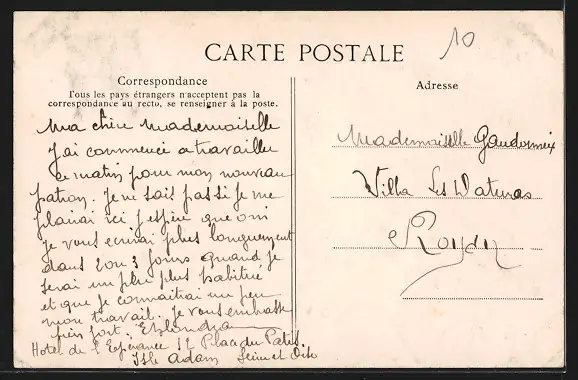 10
CARTE POSTALE
Correspondance
Tous les pays étrangers n'acceptent pas la
correspondance au recto, se renseigner à la poste.
Adresse
Ma chère Mademoiselle
J'ai commencé a travailler
ce matin pour mon nouveau
patron. Je ne sais pas si je me
plairai ici j'espère que oui
je vous ecrirai plus longuement
dans 2 ou 3 jours quand je
serai un peu plus habitué
et que je connaitrai un peu
mon travail. Je vous embrasse
bien fort.
Hotel de l'Espérance 12 Place du Patis
Isle Adam Seine et Oise
Mademoiselle
Villa Les
Royan